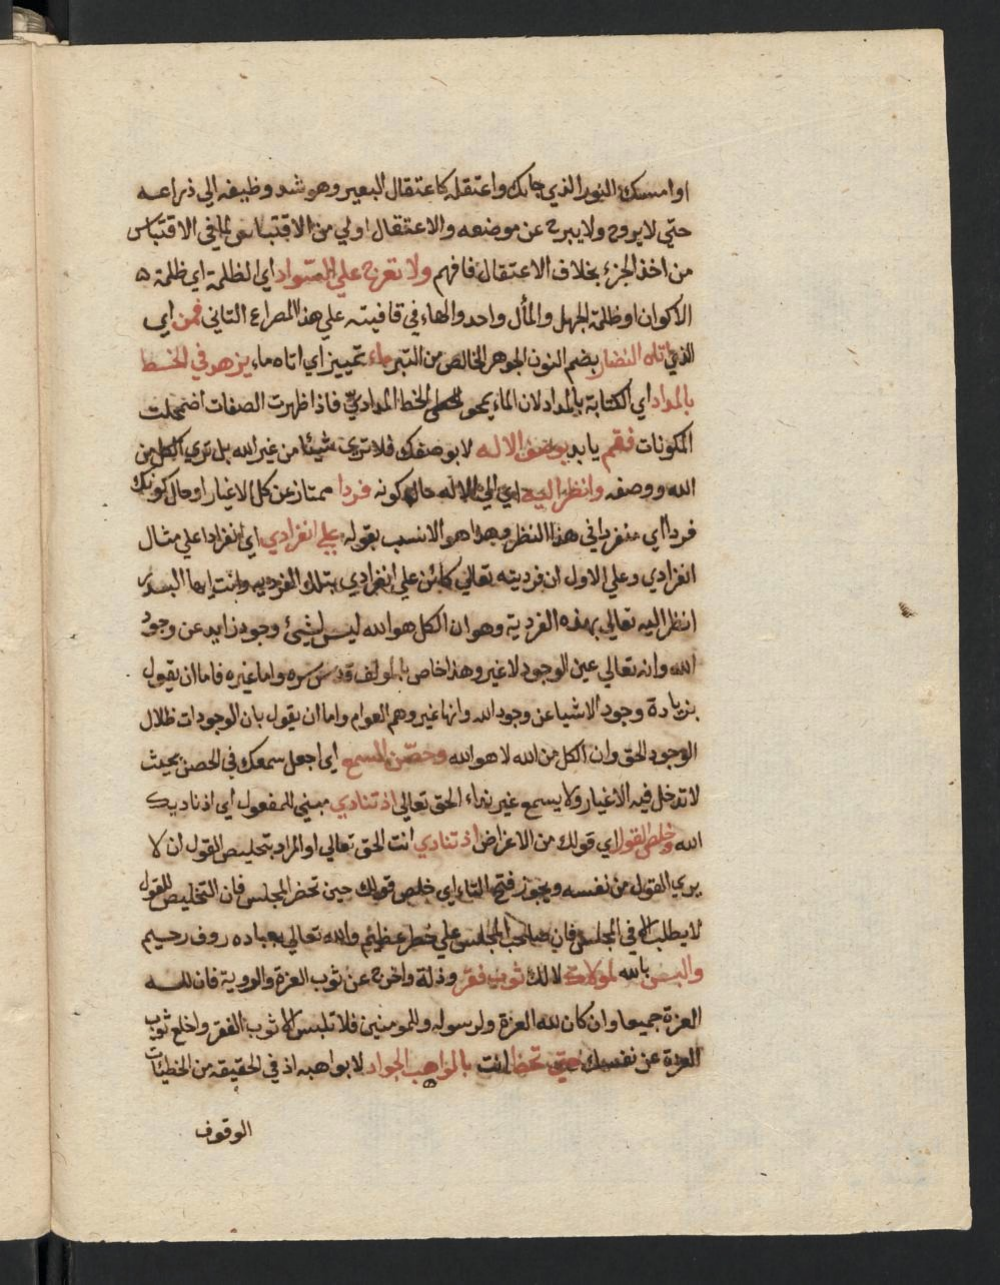 او امسك النور الذي جاءك واعتقله كاعتقال البعير وهو شد وظيفه الي ذراعه
حتي لا يروح ولا يبرح عن موضعه والاعتقال اولي من الاقتباس لما في الاقتباس
من اخذ الجزء بخلاف الاعتقال فافهم ولا تعرج علي السواد اي الظلمة اي ظلمة ه
الاكوان او ظلمة الجهل والمأل واحد والهاء في قافيته علي هذا المصراع الثاني فمن اي
الذي اتاه النضار بضم النون الجوهر الخالص من التبر ماء تمييز اي اتاه ماء يزهد في الخط
بالمداد اي الكتابة بالمداد لان الماء يمحو الخط المدادي فاذا ظهرت الصفات اضمحلت
المكونات فقم يا بدر بوصف الاله لا بوصفك فلا تري شيئا من غير الله بل تري الكل من
الله ووصفه وانظر اليه اي الي الاله حال كونه فردا ممتاز عن كل الاغيار او حال كونك
فردا اي منفردا في هذا النظر وهذا هو الانسب بقوله علي انفرادي اي انفرادا علي مثال
انفرادي وعلي الاول ان فرديته تعالي كائن علي انفرادي بتلك الفرديه وانت ايها البدر
انظر اليه تعالي بهذه الفردية وهو ان الكل هو الله ليس لشيئ وجود زايد عن وجود
الله وانه تعالي عين الوجود لا غير وهذا خاص بالمولف قدس سره واما غيره فاما ان يقول
بزيادة وجود الاشيا عن وجود الله وانها غير وهم العوام واما ان يقول بان الوجودات ظلال
الوجود الحق وان الكل من الله لا هو الله وحصّن المسمع اي اجعل سمعك في الحصن بحيث
لا تدخل فيه الاغيار ولا يسمع غير نداء الحق تعالي اذ تنادي مبني للمفعول اي اذ ناديك
الله وخلص القول اي قولك من الاعراض اذ تنادي انت الحق تعالي او المراد بتخليص القول ان لا
يري القول من نفسه ويجوز فتح التاء اي خلص قولك حين تحضر المجلس فان التخليص للقول
لا يطلب الا في المجلس فان صاحب المجلس علي خطر عظيم والله تعالي بعباده روف رحيم
والبس بالله لمولاك لا لك ثوب فقر وذلة واخرج عن ثوب العزة والروية فان لله
العزة جميعا وان كان لله العزة ولرسوله وللمومنين فلا تلبس الا ثوب الفقر واخلع ثوب
العزة عن نفسك حتي تحظا انت بالمواهب الجواد لا بواهبه اذ في الحقيقه من الخطيئات
الوقوف